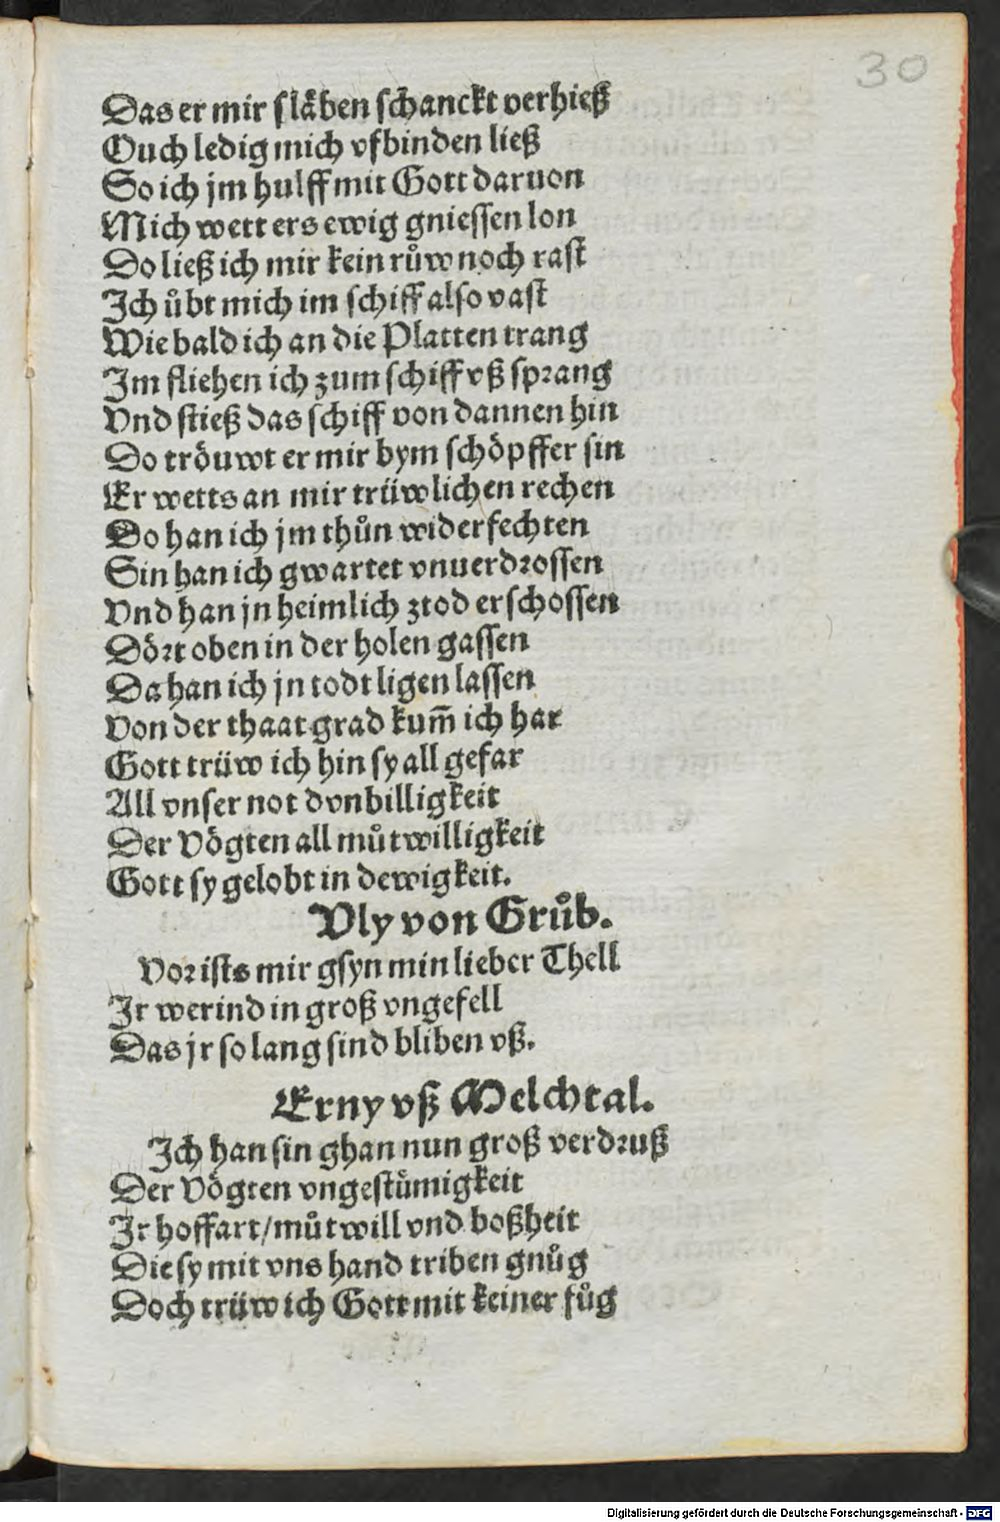 30
Das er mir s läben schanckt verhieß
Ouch ledig mich vfbinden ließ
So ich jm hulff mit Gott daruon
Mich wett ers ewig gniessen lon
Do ließ ich mir kein růw noch rast
Ich ůbt mich im schiff also vast
Wie bald ich an die Platten trang
Im fliehen ich zum schiff vß sprang
Vnd stieß das schiff von dannen hin
Do tröuwt er mir bym schöpffer sin
Er wetts an mir trüwlichen rechen
Do han ich jm thůn widerfechten
Sin han ich gwartet vnuerdrossen
Vnd han jn heimlich ztod erschossen
Dört oben in der holen gassen
Da han ich jn todt ligen lassen
Von der thaat grad kum̄ ich har
Gott trüw ich hin sy all gefar
All vnser not dvnbilligkeit
Der Vögten all můtwilligkeit
Gott sy gelobt in dewigkeit.
Vly von Grůb.
Vor ists mir gsyn min lieber Thell
Ir werind in groß vngefell
Das jr so lang sind bliben vß.
Erny vß Melchtal.
Ich han sin ghan nun groß verdruß
Der Vögten vngestümigkeit
Ir hoffart/můtwill vnd boßheit
Die sy mit vns hand triben gnůg
Doch trüw ich Gott mit keiner fůg
Digitalisierung gefördert durch die Deutsche Forschungsgemeinschaft - DFG